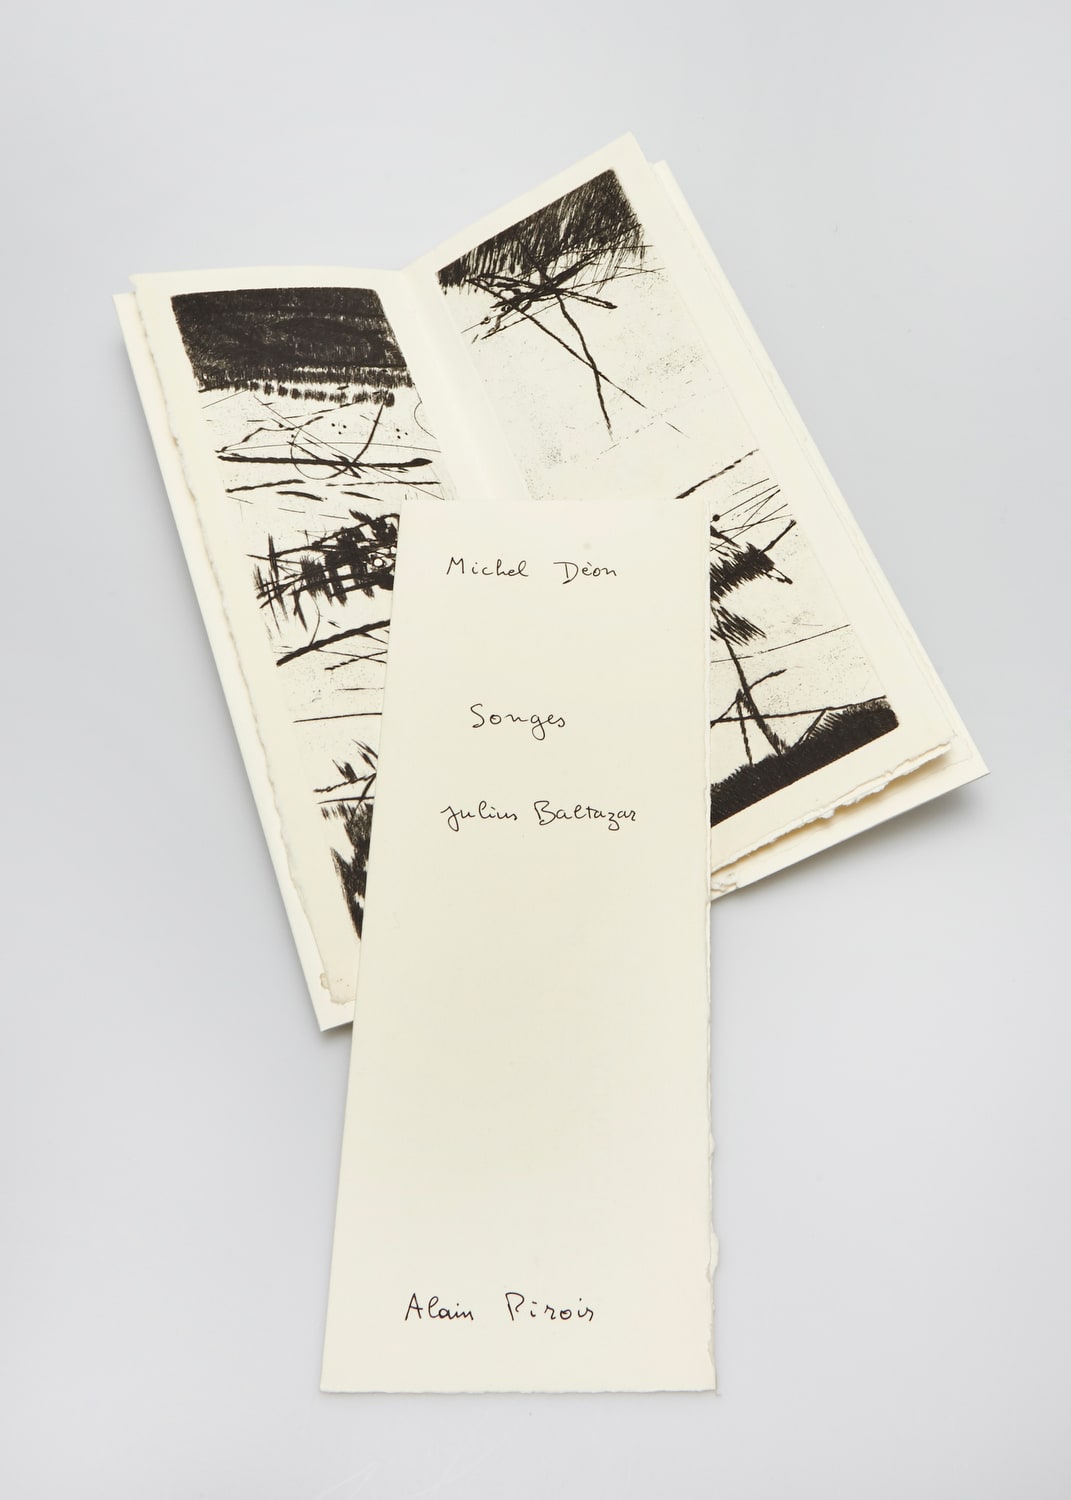 Michel Déon
Songes
Julius Baltazar
Alain Piroir